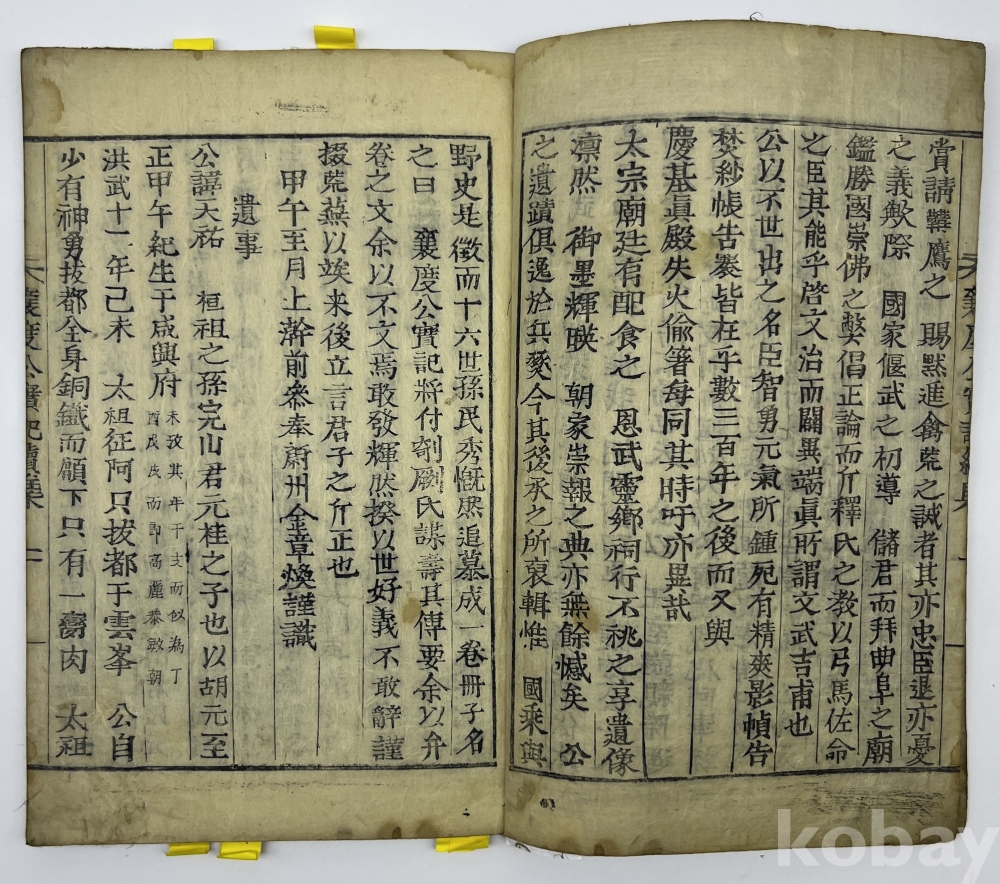 賞請韝鷹之 賜黙進禽荒之誠者其亦忠臣退亦憂
之義歟際 國家偃武之初導 儲君而拜曲阜之廟
鑑勝國崇佛之弊倡正論而斤釋氏之教以弓馬佐命
之臣其能乎啓文治而闢異端眞所謂文武吉甫也
公以不世出之名臣智勇元氣所鍾死有精爽影幀告
梦紗帳告爇皆在乎數三百年之後而又與
慶基眞殿失火偸箸每同其時吁亦異㦲
太宗廟廷有配食之 恩武靈鄉祠行不祧之享遺像
凛然 御墨輝暎 朝家崇報之典亦無餘憾矣 公
之遺蹟俱逸於兵燹今其後承之所裒輯惟 國乘與
野史是徵而十六世孫民秀慨然追慕成一卷冊子名
之曰 襄度公實記將付剞劂氏謀壽其傳要余以弁
卷之文余以不文焉敢發輝然揆以世好義不敢辭謹
掇荒蕪以竢来後立言君子之斤正也
甲午至月上澣前叅奉蔚州金章煥謹識
遺事
公諱天祐 桓祖之孫完山君元桂之子也以胡元至
正甲午紀生于咸興府 未攷其年干支而似爲丁酉戊戌而即高麗恭愍朝
洪武十一年己未 太祖征阿只拔都于雲峯 公自
少有神勇拔都全身銅鐵而頤下只有一臠肉 太祖
kobay